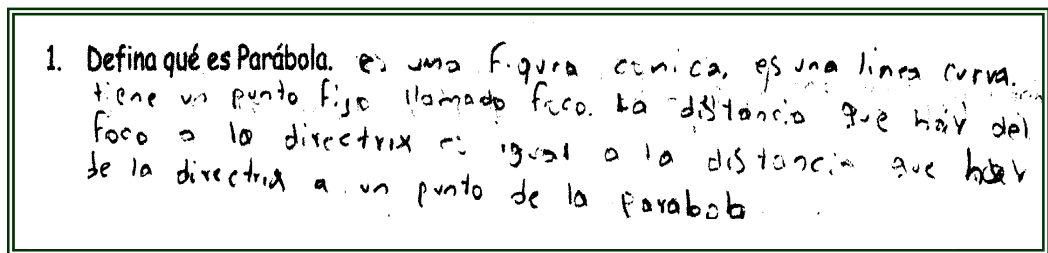 1. Defina qué es Parábola. es una figura conica, es una linea curva.
tiene un punto fijo llamado foco. La distancia que hay del
foco a la directrix es igual a la distancia que hay
de la directrix a un punto de la parabola